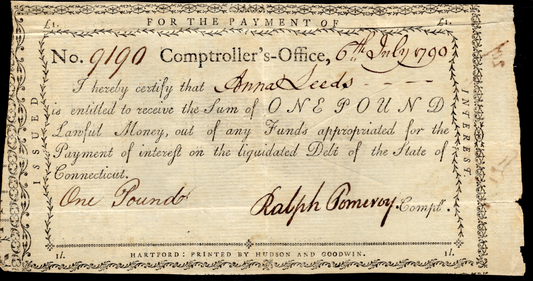 £1. FOR THE PAYMENT OF £1.
No. 9190 Comptroller's-Office, 6th July 1790
I hereby certify that Anna Leeds
is entitled to receive the Sum of ONE POUND
Lawful Money, out of any Funds appropriated for the
Payment of interest on the liquidated Debt of the State of
Connecticut.
One Pound Ralph Pomeroy Comptr.
ISSUED
INTEREST
1l. HARTFORD: PRINTED BY HUDSON AND GOODWIN. 1l.